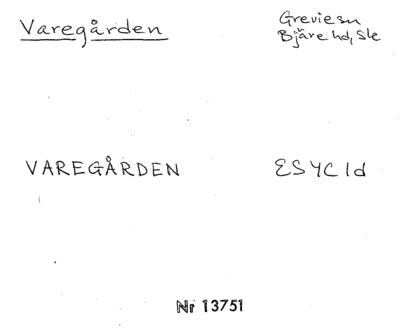 Varegården
Grevie sn
Bjäre hd, Sk
VAREGÅRDEN
ESYC1d
Nr 13751